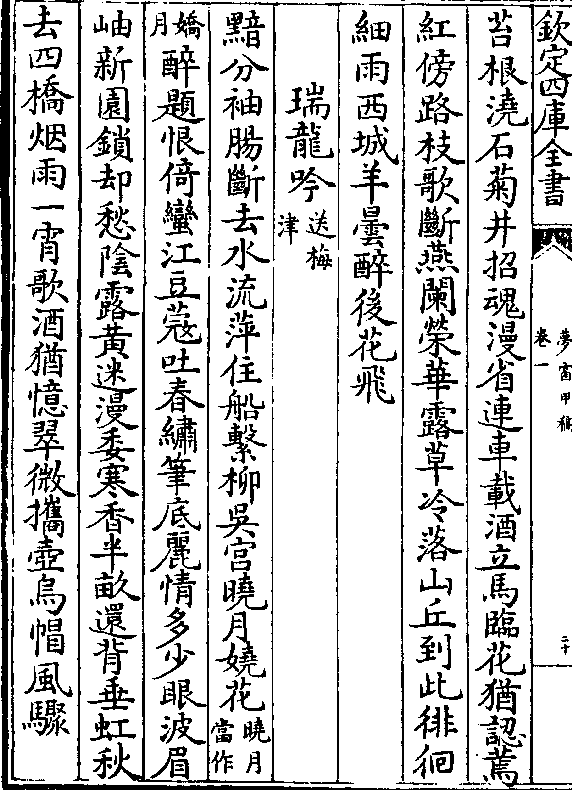 欽定四庫全書
夢窗甲稿
卷一
二十
苔根澆石菊井招魂漫省連車載酒立馬臨花猶認蔫
紅傍路枝歌斷燕闌榮華露草冷落山丘到此徘徊
細雨西城羊曇醉後花飛
瑞龍吟送梅津
黯分袖腸斷去水流萍住船繫柳吳宮曉月嬈花曉月當作
嬌月醉題恨倚蠻江豆蔻吐春繡筆底麗情多少眼波眉
岫新園鎖却愁陰露黃迷漫委寒香半畝還背垂虹秋
去四橋烟雨一宵歌酒猶憶翠微攜壺烏帽風驟